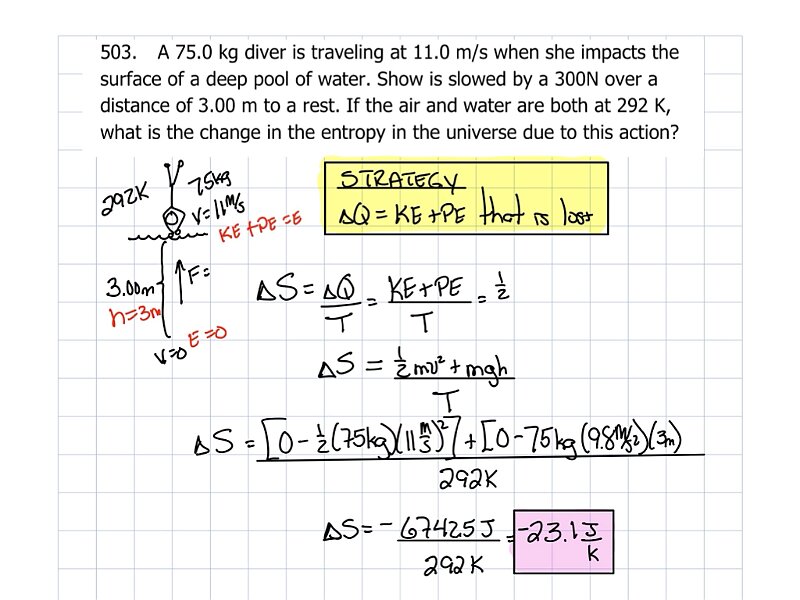 503. A 75.0 kg diver is traveling at 11.0 m/s when she impacts the
surface of a deep pool of water. Show is slowed by a 300N over a
distance of 3.00 m to a rest. If the air and water are both at 292 K,
what is the change in the entropy in the universe due to this action?
292K
75kg
V=11 m/s
KE+PE=E
STRATEGY
ΔQ = KE+PE that is lost
3.00m
h=3m
F=
V=0
E=0
ΔS = ΔQ/T = KE+PE/T = 1/2
ΔS = 1/2 mv² + mgh / T
ΔS = [0 - 1/2 (75kg)(11 m/s)²] + [0 - 75kg (9.8 m/s²)(3m) / 292K
ΔS = - 6742.5 J / 292K = -23.1 J/K